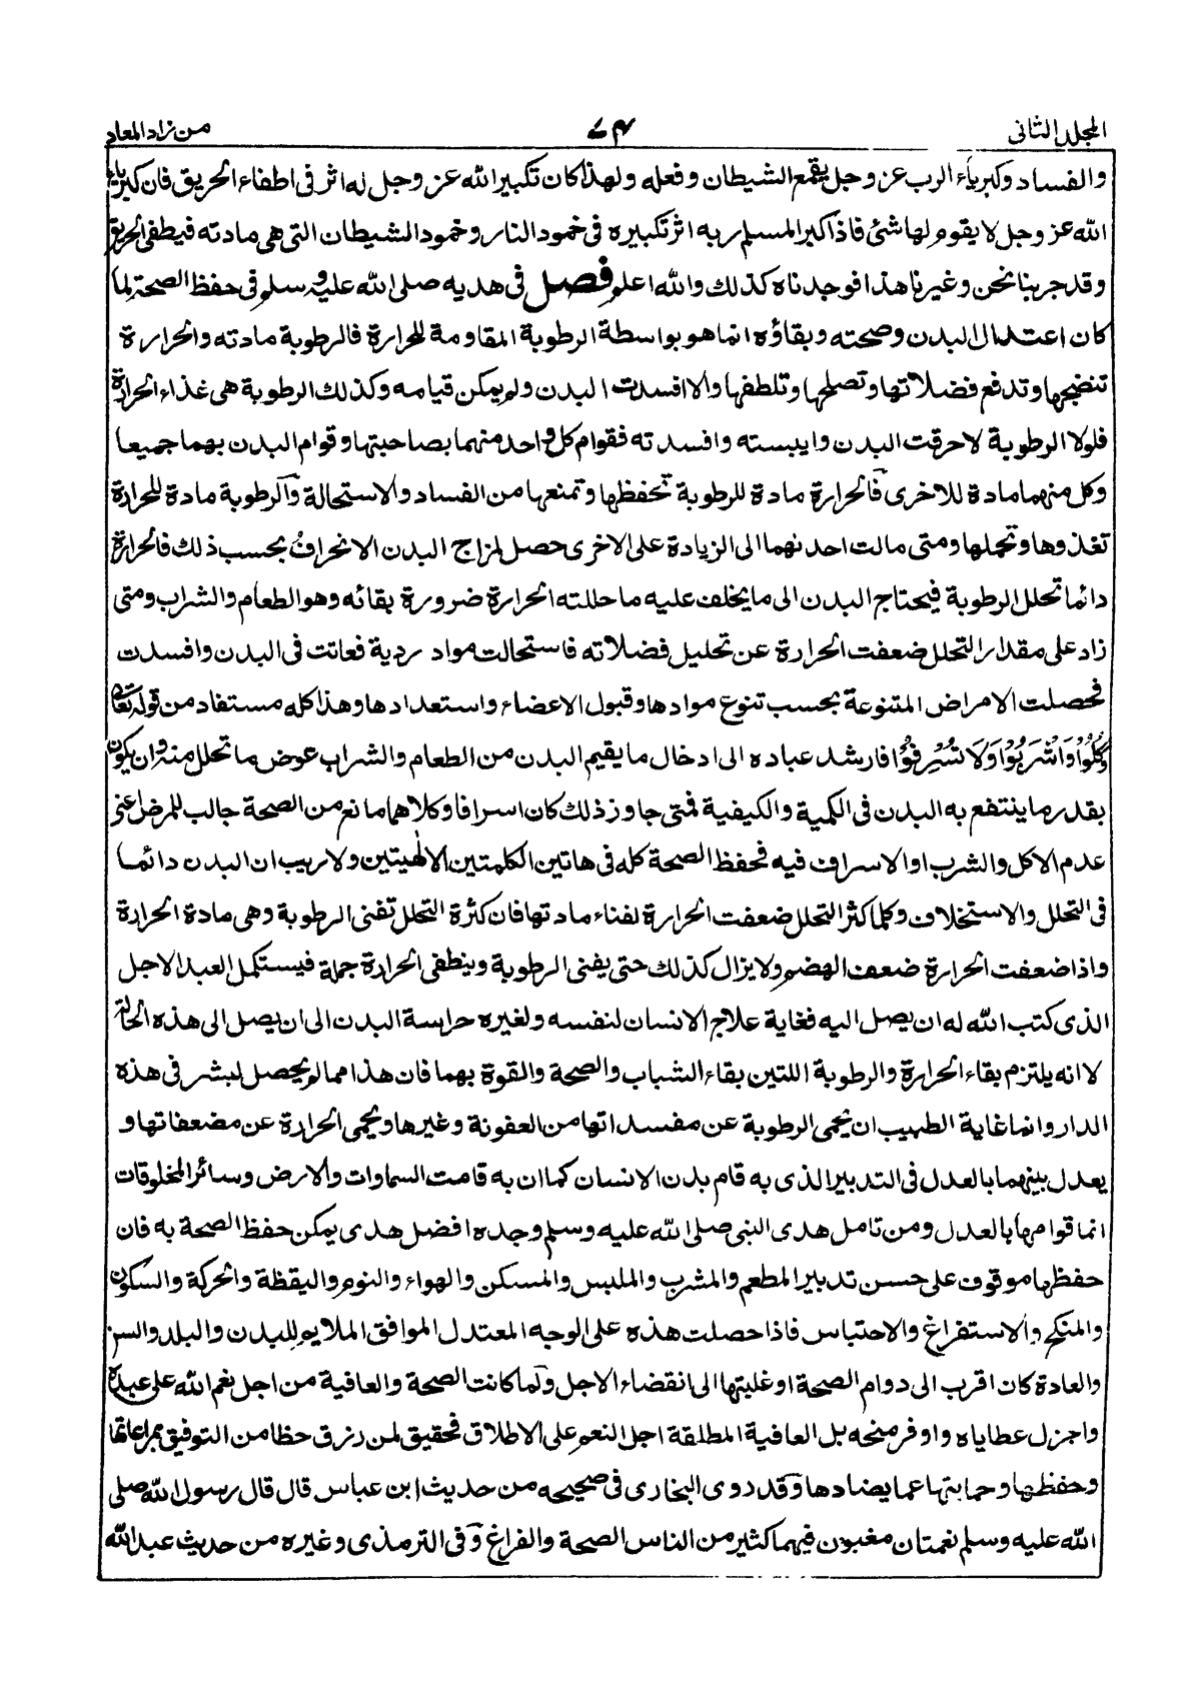 المجلد الثانی
٧٤
من زاد المعاد
والفساد وكبرياء الرب عز وجل يقمع الشيطان وفعله ولهذا كان تكبير الله عز وجل له اثر فى اطفاء الحريق فان كبرياء
الله عز وجل لا يقوم لها شئ فاذا كبر المسلم ربه اثر تكبيره فى خمود النار وخمود الشيطان التى هى مادته فيطفى الحريق
وقد جربنا نحن وغيرنا هذا فوجدناه كذلك والله اعلم فصل فى هديه صلى الله عليه وسلم فى حفظ الصحة لما
كان اعتدال البدن وصحته وبقاؤه انما هو بواسطة الرطوبة المقاومة للحرارة فالرطوبة مادته والحرارة
تنضجها وتدفع فضلاتها وتصلحها وتلطفها والا افسدت البدن ولم يمكن قيامه وكذلك الرطوبة هى غذاء الحرارة
فلولا الرطوبة لاحرقت البدن وايبسته وافسدته فقوام كل واحد منهما بصاحبتها وقوام البدن بهما جميعا
وكل منهما مادة للاخرى فالحرارة مادة للرطوبة تحفظها وتمنعها من الفساد والاستحالة والرطوبة مادة للحرارة
تغذوها وتحملها ومتى مالت احدنهما الى الزيادة على الاخرى حصل لمزاج البدن الانحراف بحسب ذلك فالحرارة
دائما تحلل الرطوبة فيحتاج البدن الى ما يخلف عليه ما حللته الحرارة ضرورة بقائه وهو الطعام والشراب ومتى
زاد على مقدار التحلل ضعفت الحرارة عن تحليل فضلاته فاستحالت مواد ردية فعاثت فى البدن وافسدت
فحصلت الامراض المتنوعة بحسب تنوع موادها وقبول الاعضاء واستعدادها وهذا كله مستفاد من قوله تعالى
وَكُلُوْا وَاشْرَبُوْا وَلَا تُسْرِفُوْا فارشد عباده الى ادخال ما يقيم البدن من الطعام والشراب عوض ما تحلل منه وان يكون
بقدر ما ينتفع به البدن فى الكمية والكيفية فمتى جاوز ذلك كان اسرافا وكلاهما مانع من الصحة جالب للمرض اعنى
عدم الاكل والشرب او الاسراف فيه فحفظ الصحة كله فى هاتين الكلمتين الالهيتين ولا ريب ان البدن دائما
فى التحلل والاستخلاف وكلما كثر التحلل ضعفت الحرارة لفناء مادتها فان كثرة التحلل تفنى الرطوبة وهى مادة الحرارة
واذا ضعفت الحرارة ضعف الهضم ولا يزال كذلك حتى يفنى الرطوبة وينطفى الحرارة جملة فيستكمل العبد الاجل
الذى كتب الله له ان يصل اليه فغاية علاج الانسان لنفسه ولغيره حراسة البدن الى ان يصل الى هذه الحالة
لا انه يلتزم بقاء الحرارة والرطوبة اللتين بقاء الشباب والصحة والقوة بهما فان هذا مما لم يحصل لبشر فى هذه
الدار وانما غاية الطبيب ان يحمى الرطوبة عن مفسداتها من العفونة وغيرها ويحمى الحرارة عن مضعفاتها و
يعدل بينهما بالعدل فى التدبير الذى به قام بدن الانسان كما ان به قامت السماوات والارض وسائر المخلوقات
انما قوامها بالعدل ومن تامل هدى النبى صلى الله عليه وسلم وجده افضل هدى يمكن حفظ الصحة به فان
حفظها موقوف على حسن تدبير المطعم والمشرب والملبس والمسكن والهواء والنوم واليقظة والحركة والسكون
والمنكح والاستفراغ والاحتباس فاذا حصلت هذه على الوجه المعتدل الموافق الملايم للبدن والبلد والسن
والعادة كان اقرب الى دوام الصحة او غلبتها الى انقضاء الاجل ولما كانت الصحة والعافية من اجل نعم الله على عبده
واجزل عطاياه واوفر منحه بل العافية المطلقة اجل النعم على الاطلاق فحقيق لمن رزق حظا من التوفيق مراعاتها
وحفظها وحمايتها عما يضادها وقد روى البخارى فى صحيحه من حديث ابن عباس قال قال رسول الله صلى
الله عليه وسلم نعمتان مغبون فيهما كثير من الناس الصحة والفراغ وفى الترمذى وغيره من حديث عبد الله